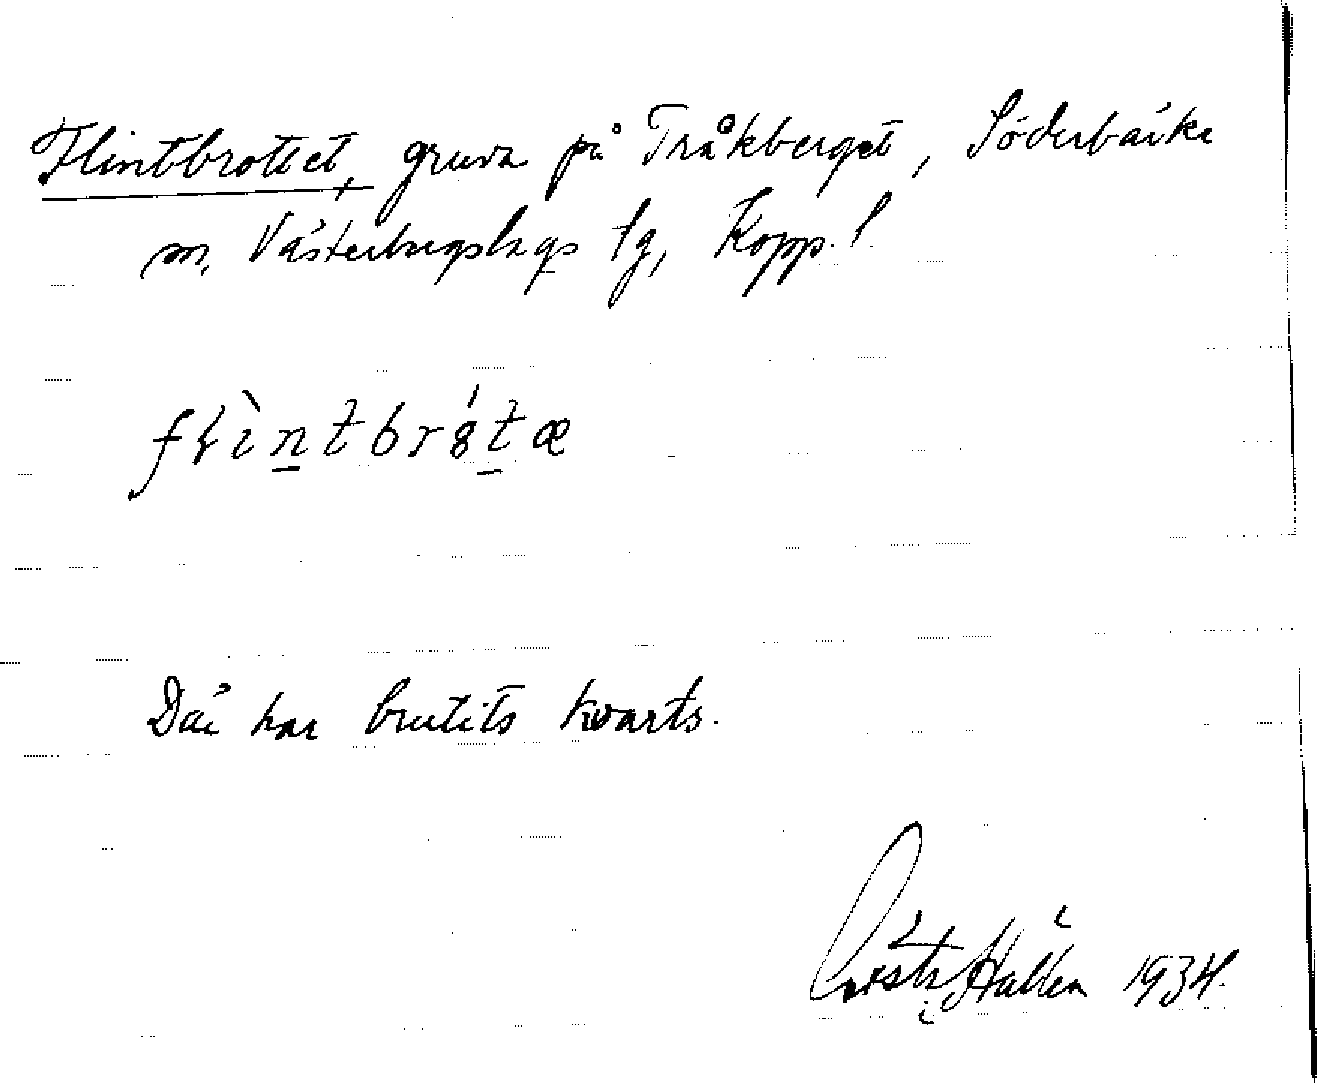 Flintbrottet, gruva på Tråkberget, Söderbärke
m. Västerbergslags fg, Kopp. l.
flìntbrótæ
Där har brutits kvarts.
Gösta Hallén 1934.